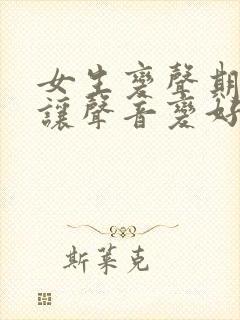 女生變聲期
讓聲音變好
斯萊克